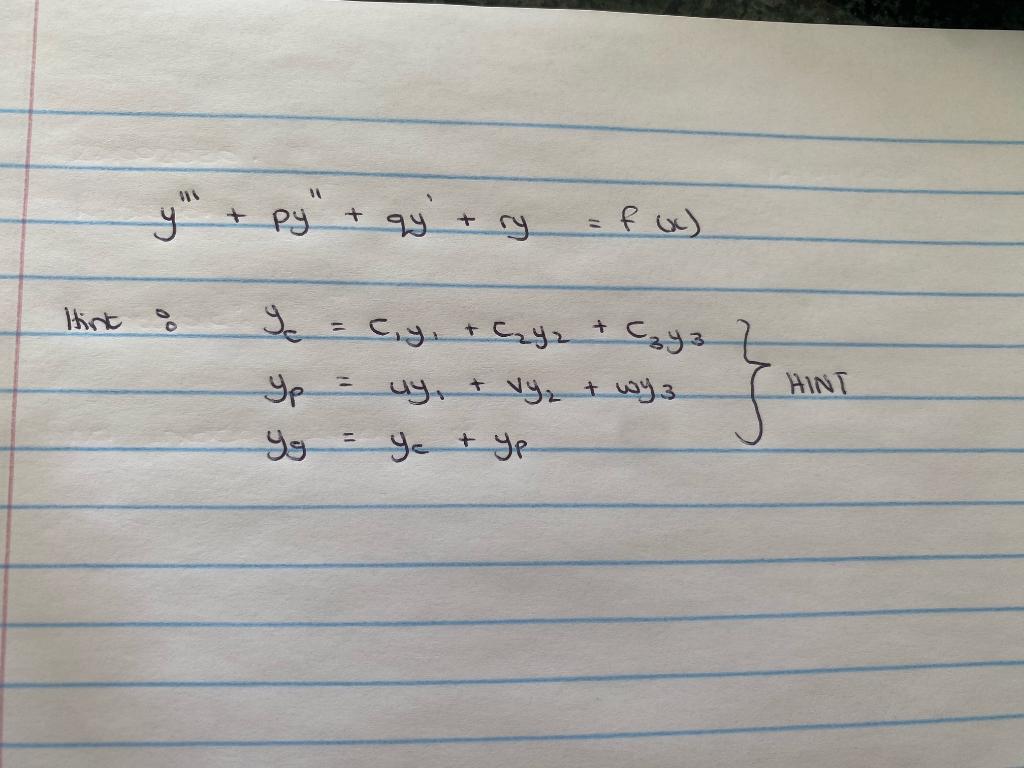 y''' + py'' + qy' + ry = f(x)
Hint : y_c = C₁y₁ + C₂y₂ + C₃y₃
y_p = uy₁ + vy₂ + wy₃ } HINT
y_g = y_c + y_p